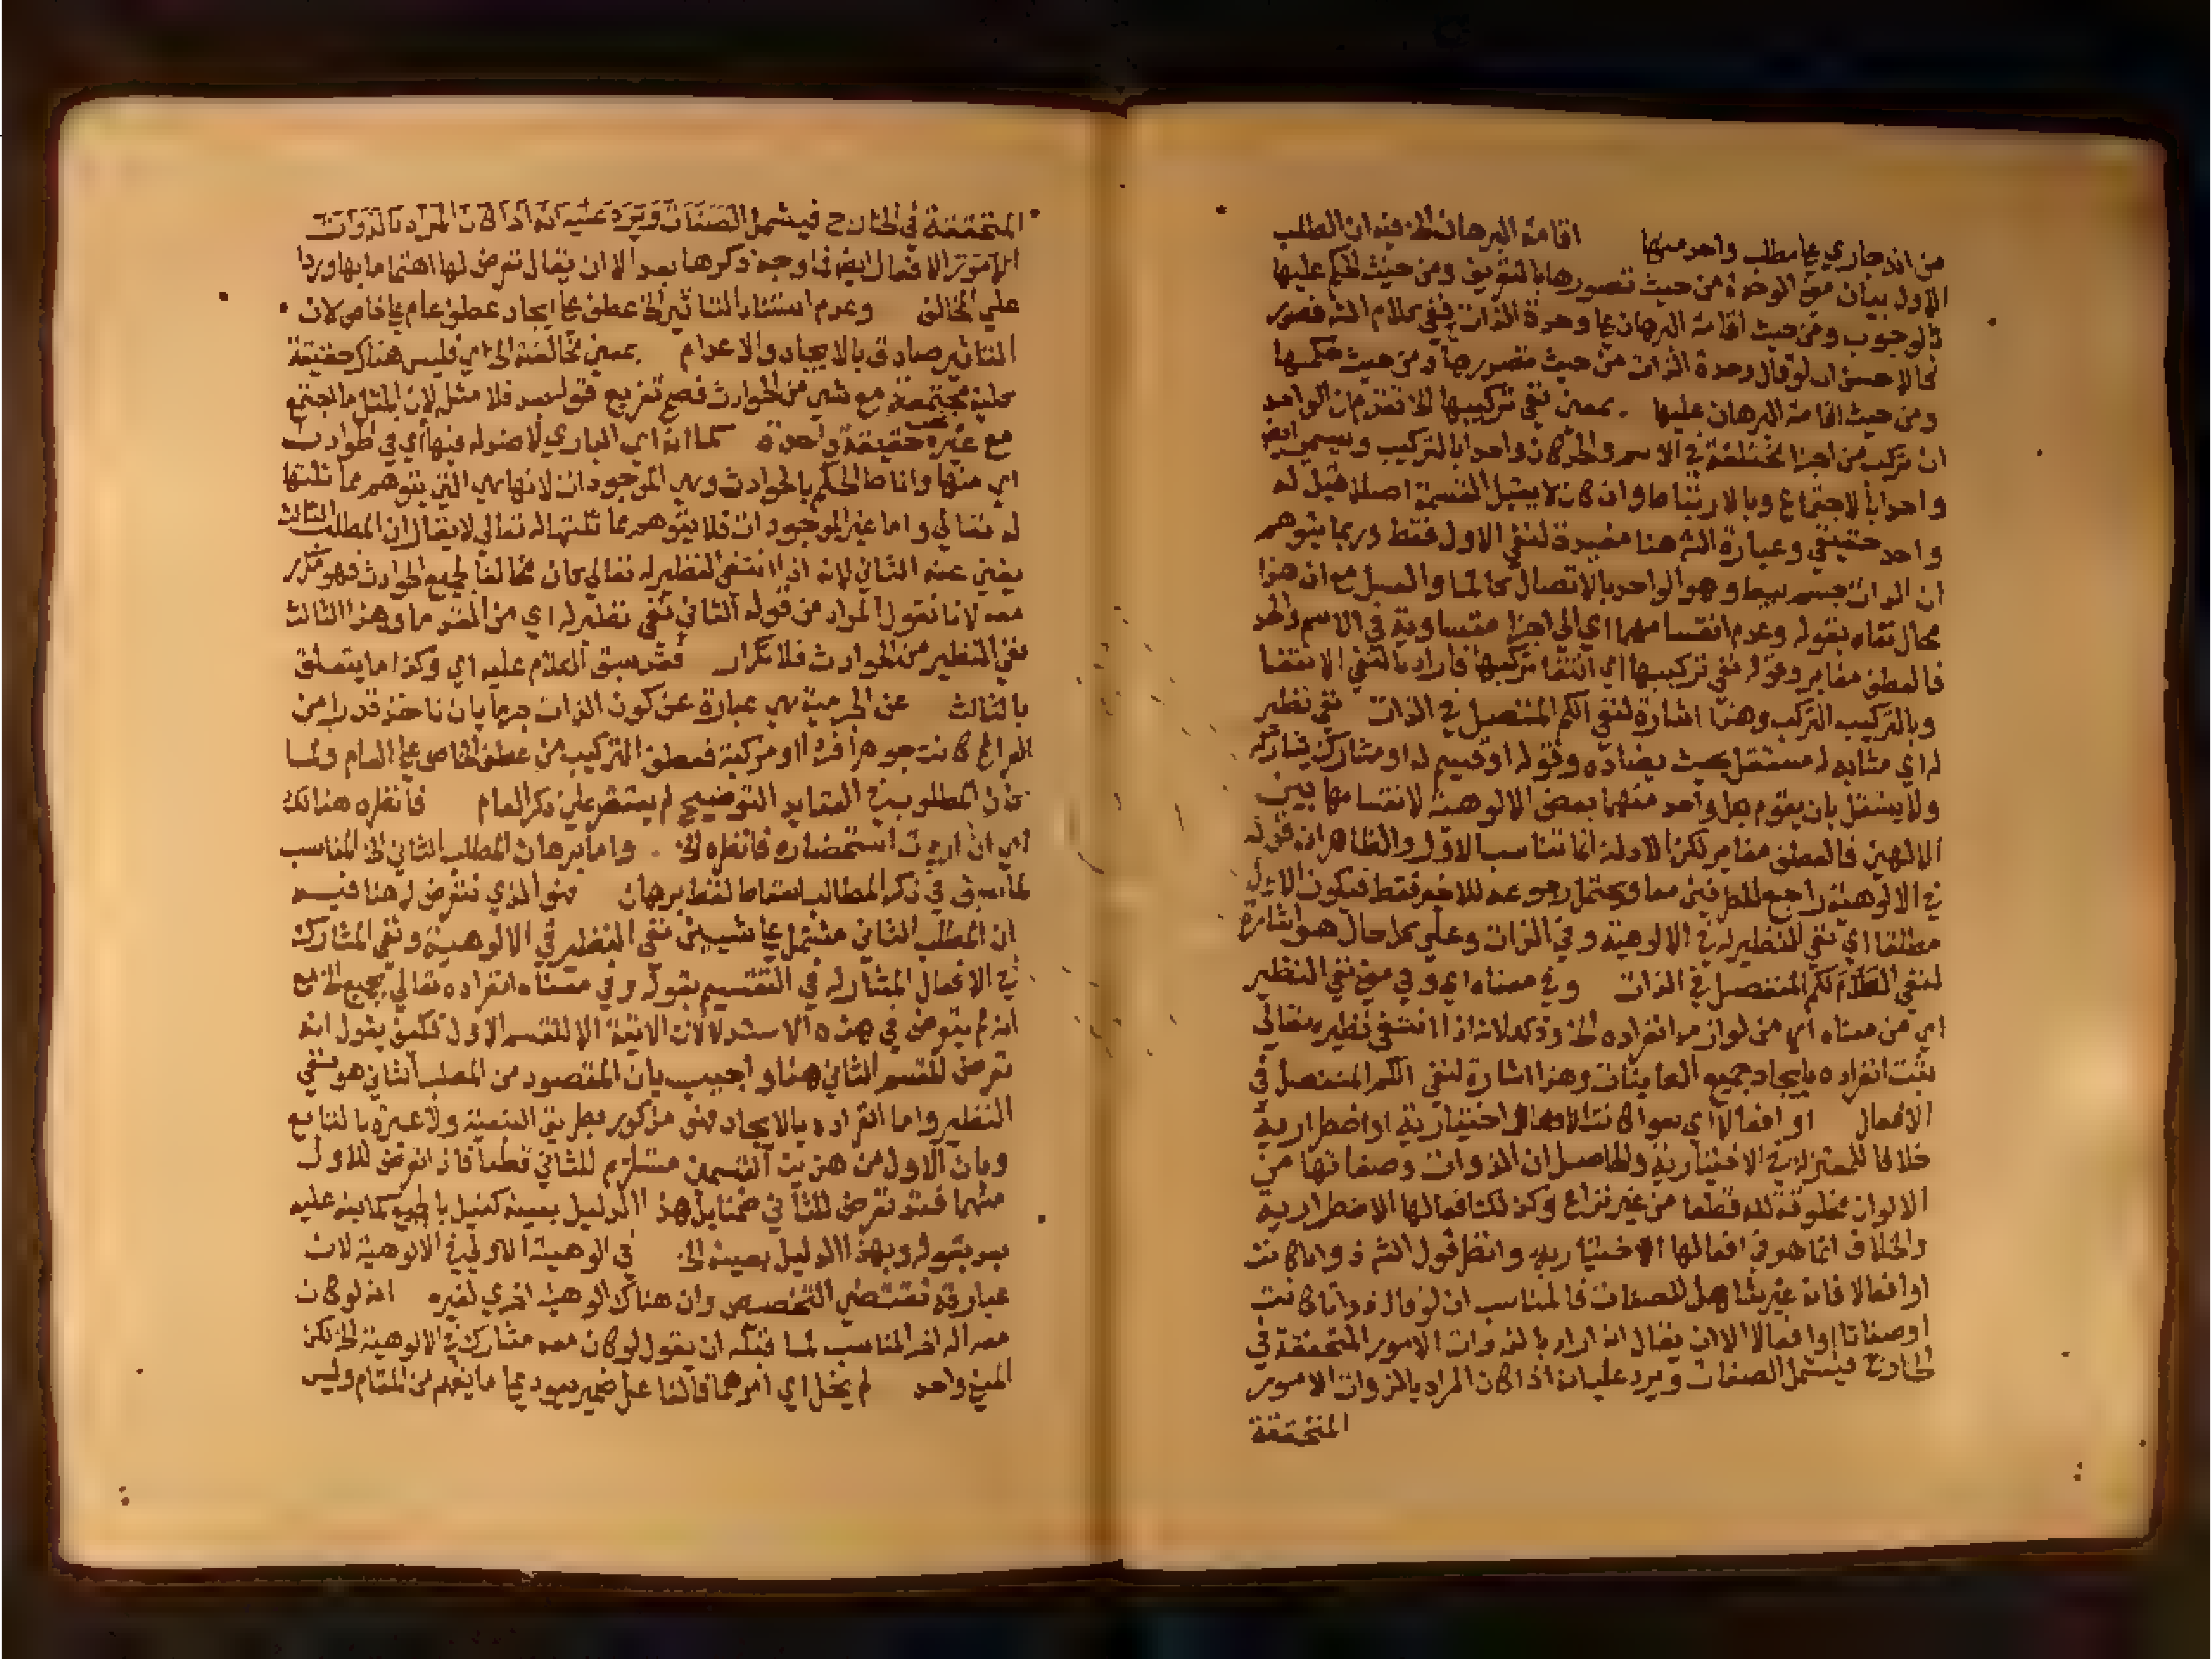 من انه جاري علي مطلب واحد منها اقامة البرهان الخ فيه ان الطلب
الاول بيان معني الوحدة من حيث تصورها بالتعريف ومن حيث الحكم عليها
بالوجوب ومن حيث اقامة البرهان علي وحدة الذات ففي كلام الشه قصور
فالاحسن ان لو قال وحدة الذات من حيث تصورها ومن حيث حكمها
ومن حيث اقامة البرهان عليها بمعني نفي تركيبها الخ تقدم ان الواحد
ان تركب من اجزا مختلفة في الاسم والحد كان واحدا بالتركيب ويسمي ايض
واحدا بالاجتماع وبالارتباط وان كان لا يقبل القسمة اصلا قيل له
واحد حقيقي وعبارة الشه هنا مفيدة لنفي الاول فقط وربما يتوهم
ان الذات جسم بسيط وهو الواحد بالاتصال كالما والعسل مع ان هذا
محال نفاه بقوله وعدم انقسامها اي الي اجزا متساوية في الاسم والحد
فالعطف مغاير وقوله نفي تركيبها اي انتفا تركبها فاراد بالنفي الانتفا
وبالتركيب التركب وهذا اشارة لنفي الكم المتصل في الذات نفي نظير
له اي مشابه له مستقل بحيث يضاده وقوله او قسيم له او مشارك يشاركه
ولا يستقل بان يقوم بكل واحد منهما بعض الالوهية لانقسامها بين
الالهين فالعطف مغاير لكن الادلة انما تناسب الاول والظاهر ان قوله
في الالوهية راجع للطرفين معا ويحتمل رجوعه للاخير فقط فيكون الاول
مطلقا اي نفي النظير له في الالوهية وفي الذات وعلي كل حال هو اشارة
لنفي الكم المنفصل في الذات وفي معناه اي وفي معني نفي النظير
اي من معناه اي من لوازمه انفراده الخ وذلك لانه اذا انتفي نظيره تعالي
ثبت انفراده بايجاد جميع الكاينات وهذا اشارة لنفي الكم المنفصل في
الافعال او افعالا اي سوا كانت الافعال اختيارية او اضطرارية
خلافا للمعتزلة في الاختيارية والحاصل ان الذوات وصفاتها من
الالوان مخلوقة لله قطعا من غير نزاع وكذلك افعالها الاضطرارية
والخلاف انما هو في افعالها الاختيارية وانظر قول الشه ذواتا كانت
او افعالا فانه غير شامل للصفات فالمناسب ان لو قال ذواتا كانت
او صفاتا او افعالا الا ان يقال انه اراد بالذوات الامور المتحققة في
الخارج فيشمل الصفات ويرد عليه انه اذا كان المراد بالذوات الامور
المتحققة
المتحققة في الخارج فيشمل الصفات ويرد عليه انه اذا كان المراد بالذوات
الامور الافعال ايض فما وجه ذكرها بعد الا ان يقال تعرض لها اهتماما بها وردا
علي المخالف وعدم استناد التاثير الخ عطف علي ايجاد عطف عام علي خاص لان
التاثير صادق بالايجاد والاعدام بمعني مخالفة الخ اي فليس هناك حقيقة
كلية مجتمعة مع شي من الحوادث فصح تفريع قوله بعد فلا مثل لان المثل ما اجتمع
مع غيره تحت حقيقة واحدة كما انه اي الباري لا مثل له فيها اي في الحوادث
اي منها واناط الحكم بالحوادث وهي الموجودات لانها هي التي يتوهم مماثلتها
له تعالي واما غير الموجودات فلا يتوهم مماثلتها له تعالي لا يقال ان المطلب الثالث
يغني عنه الثاني لانه اذا انتفي النظير له تعالي كان مخالفا لجميع الحوادث فهو مكرر
معه لانا نقول المراد من قوله الثاني نفي نظير له اي من القدما وهذا الثالث
نفي النظير من الحوادث فلا تكرار فقد سبق الكلام عليه اي وكذا ما يتعلق
بالثالث عن الجرمية هي عبارة عن كون الذات جرما بان تاخذ قدرا من
الفراغ كانت جوهرا فردا او مركبة فعطف التركيب من عطف الخاص علي العام ولما
كان المطلوب في العقايد التوضيح لم يقتصر علي ذكر العام فانظره هنالك
اي ان اردت استحضاره فانظره الخ واما برهان المطلب الثاني الخ المناسب
لما سبق في ذكر المطالب اسقاط لفظ برهان فهو الذي نتعرض له هنا فيه
ان المطلب الثاني مشتمل علي شيئين نفي النظير في الالوهية ونفي المشارك
في الافعال المشار له في التقسيم بقوله وفي معناه انفراده تعالي بجميع الخ مع
انه لم يتعرض في هذه الاستدلالات الاتية الا للقسم الاول فكيف يقول انه
تعرض للقسم الثاني هنا واجيب بان المقصود من المطلب الثاني هو نفي
النظير واما انفراده بالايجاد فهو مذكور بطريق التبعية ولا عبرة بالتابع
وبان الاول من هذين القسمين مستلزم للثاني قطعا فاذا تعرض للاول
منهما فقد تعرض للثاني ضمنا بل هذا الدليل بعينه كفيل بالجميع كما ينبه عليه
بعد بقوله وبهذا الدليل بعينه الخ في الوهية الاولي في الالوهية لان
عبارته تقتضي التخصيص وان هناك الوهية اخري لغيره انه لو كان
معه اله اخر المناسب لما قبله ان يقول لو كان معه مشارك في الالوهية الخ لكن
المعني واحد لم يخل اي امرهما فالفاعل ضمير يعود علي ما يفهم من المقام وليس